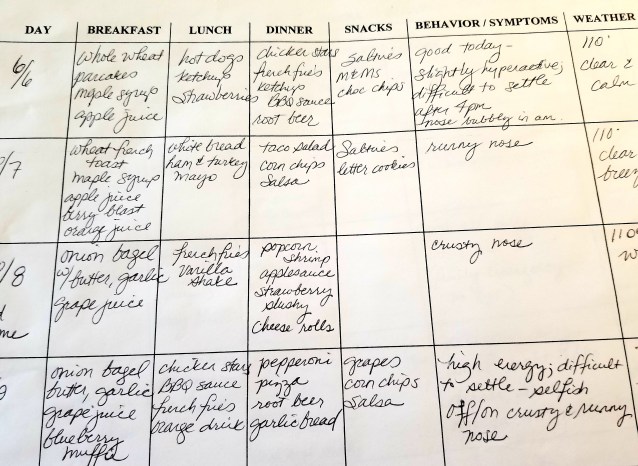 DAY BREAKFAST LUNCH DINNER SNACKS BEHAVIOR / SYMPTOMS WEATHER
6/6
whole wheat
pancakes
maple syrup
apple juice
hot dogs
ketchup
strawberries
chicken stars
french fries
ketchup
BBQ sauce
root beer
Saltines
M&Ms
choc chips
good today -
slightly hyperactive;
difficult to settle
after 4pm
nose bubbly in am
110°
clear &
calm
/7
wheat french
toast
maple syrup
apple juice
berry blast
orange juice
white bread
ham & turkey
mayo
taco salad
corn chips
salsa
Saltines
letter cookies
runny nose
110°
clear
breez
/8
me
onion bagel
w/ butter, garlic
grape juice
french fries
vanilla
shake
popcorn
shrimp
applesauce
strawberry
slushy
cheese rolls
crusty nose
110°
w
9
onion bagel
butter, garlic
grape juice
blueberry
muffin
chicken stars
BBQ sauce
french fries
orange drink
pepperoni
pizza
root beer
garlic bread
grapes
corn chips
salsa
high energy; difficult
to settle - selfish
off/on crusty & runny
nose